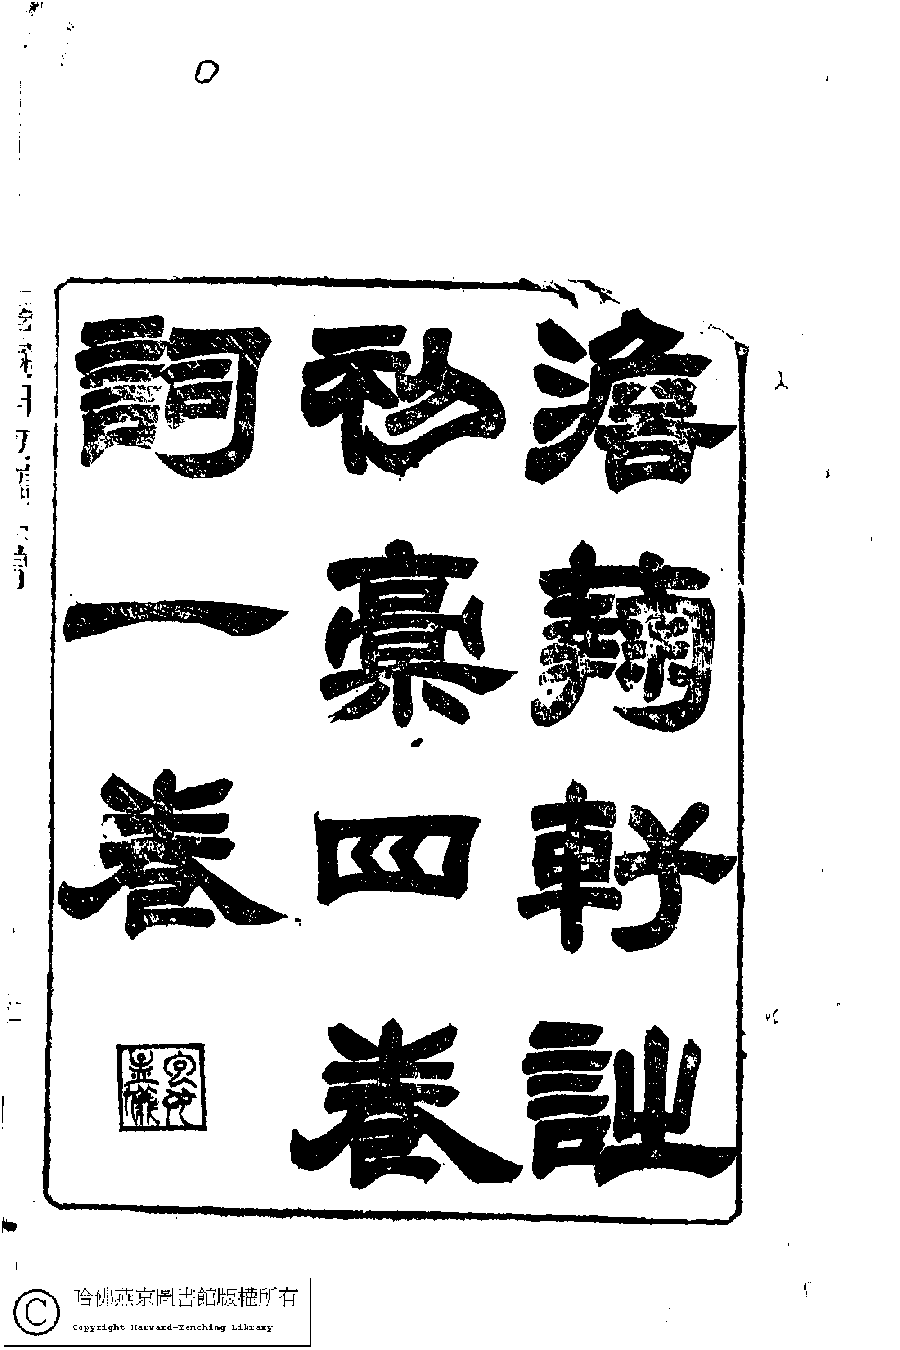 澹蘜軒詩
初稾四卷
詞一卷
哈佛燕京圖書館版權所有
Copyright Harvard-Yenching Library